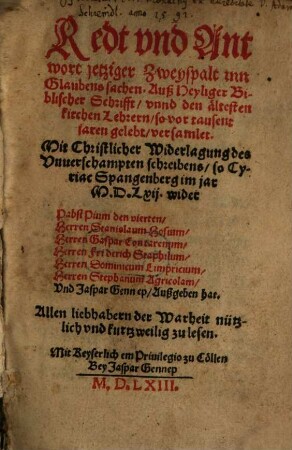 Schzeindl. anno 15 91.
Redt vnd Ant
wort jetziger Zweyspalt inn
Glaubens sachen. Auß Heyliger Bi-
blischer Schrifft/ vnnd den ältesten
kirchen Lehrern/ so vor tausent
jaren gelebt/ versamlet.
Mit Christlicher Widerlagung des
Vnuerschampten schreibens/ so Cy-
riac Spangenberg im jar
M.D.Lxij. wider
Pabst Pium den vierten/
Herren Stanislaum Hosium/
Herren Gaspar Cyntarenum/
Herren Friderich Staphilum/
Herren Dominicum Limpricium/
Herren Stephanum Agricolam/
Vnd Jaspar Gennep/ Außgeben hat.
Allen liebhabern der Warheit nütz-
lich vnd kurtzweilig zu lesen.
Mit Keyserlichem Priuilegio zu Cöllen
Bey Jaspar Gennep
M. D. LXIII.